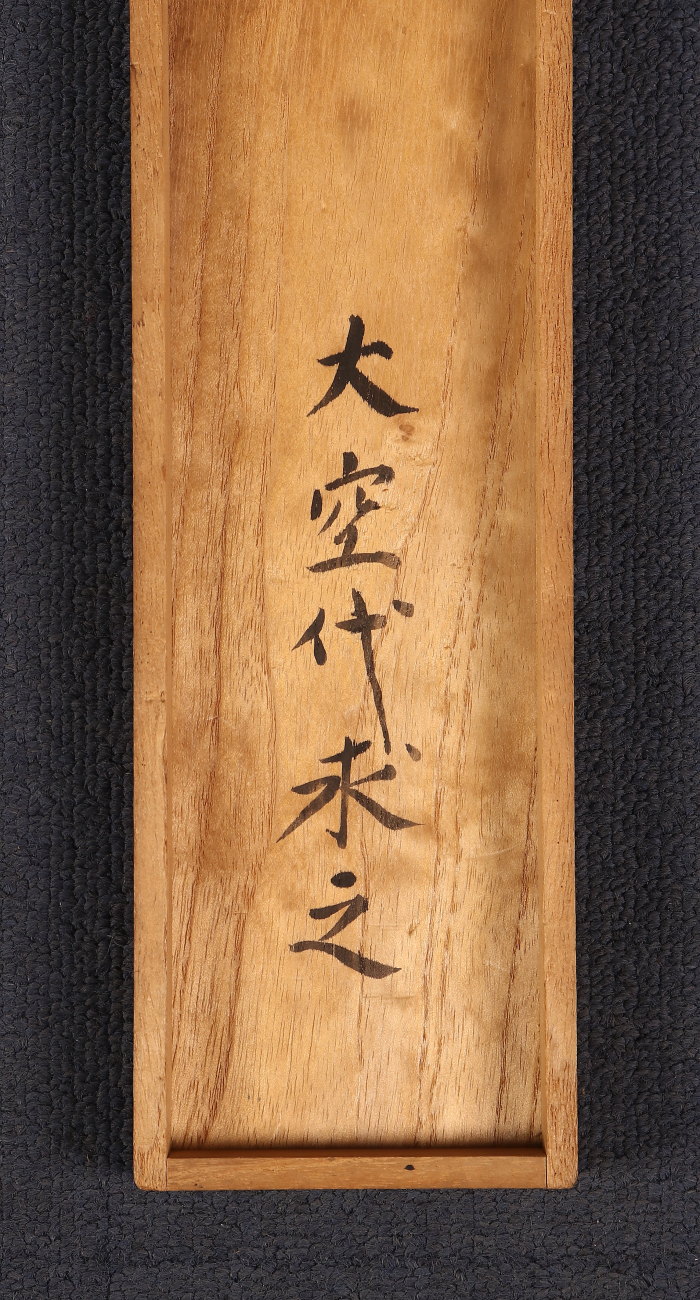 大空代求之